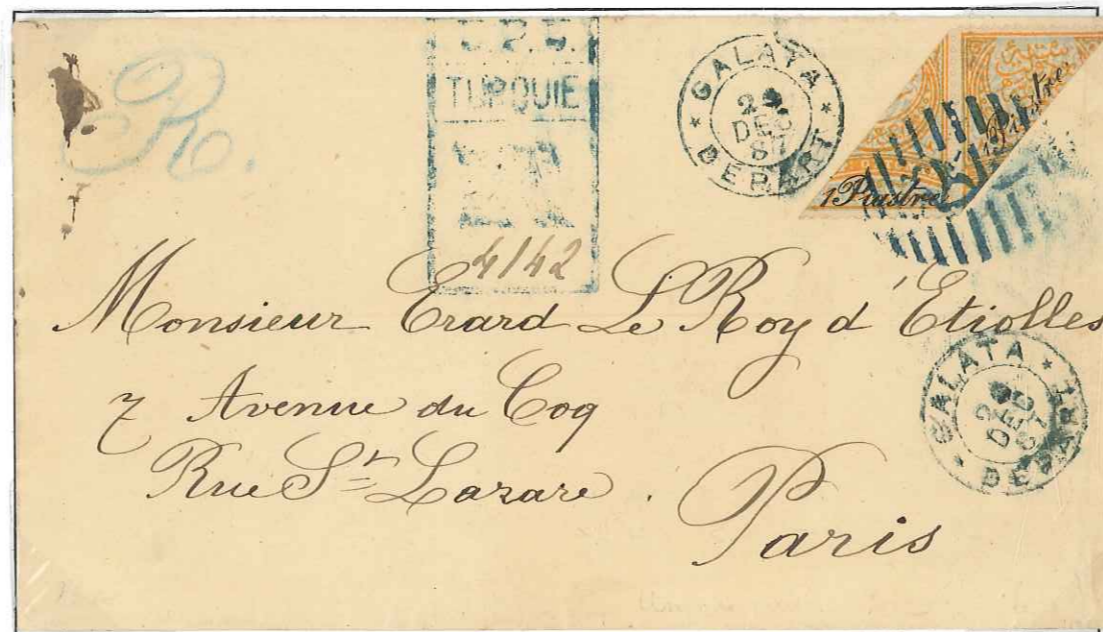 R.
U.P.U.
TURQUIE
4142
* GALATA *
24
DEC
87
DEPART
1 Piastre
1 Piastre
Monsieur Erard Le Roy d'Etiolles
7 Avenue du Coq
Rue St Lazare.
Paris
* GALATA *
24
DEC
87
DEPART